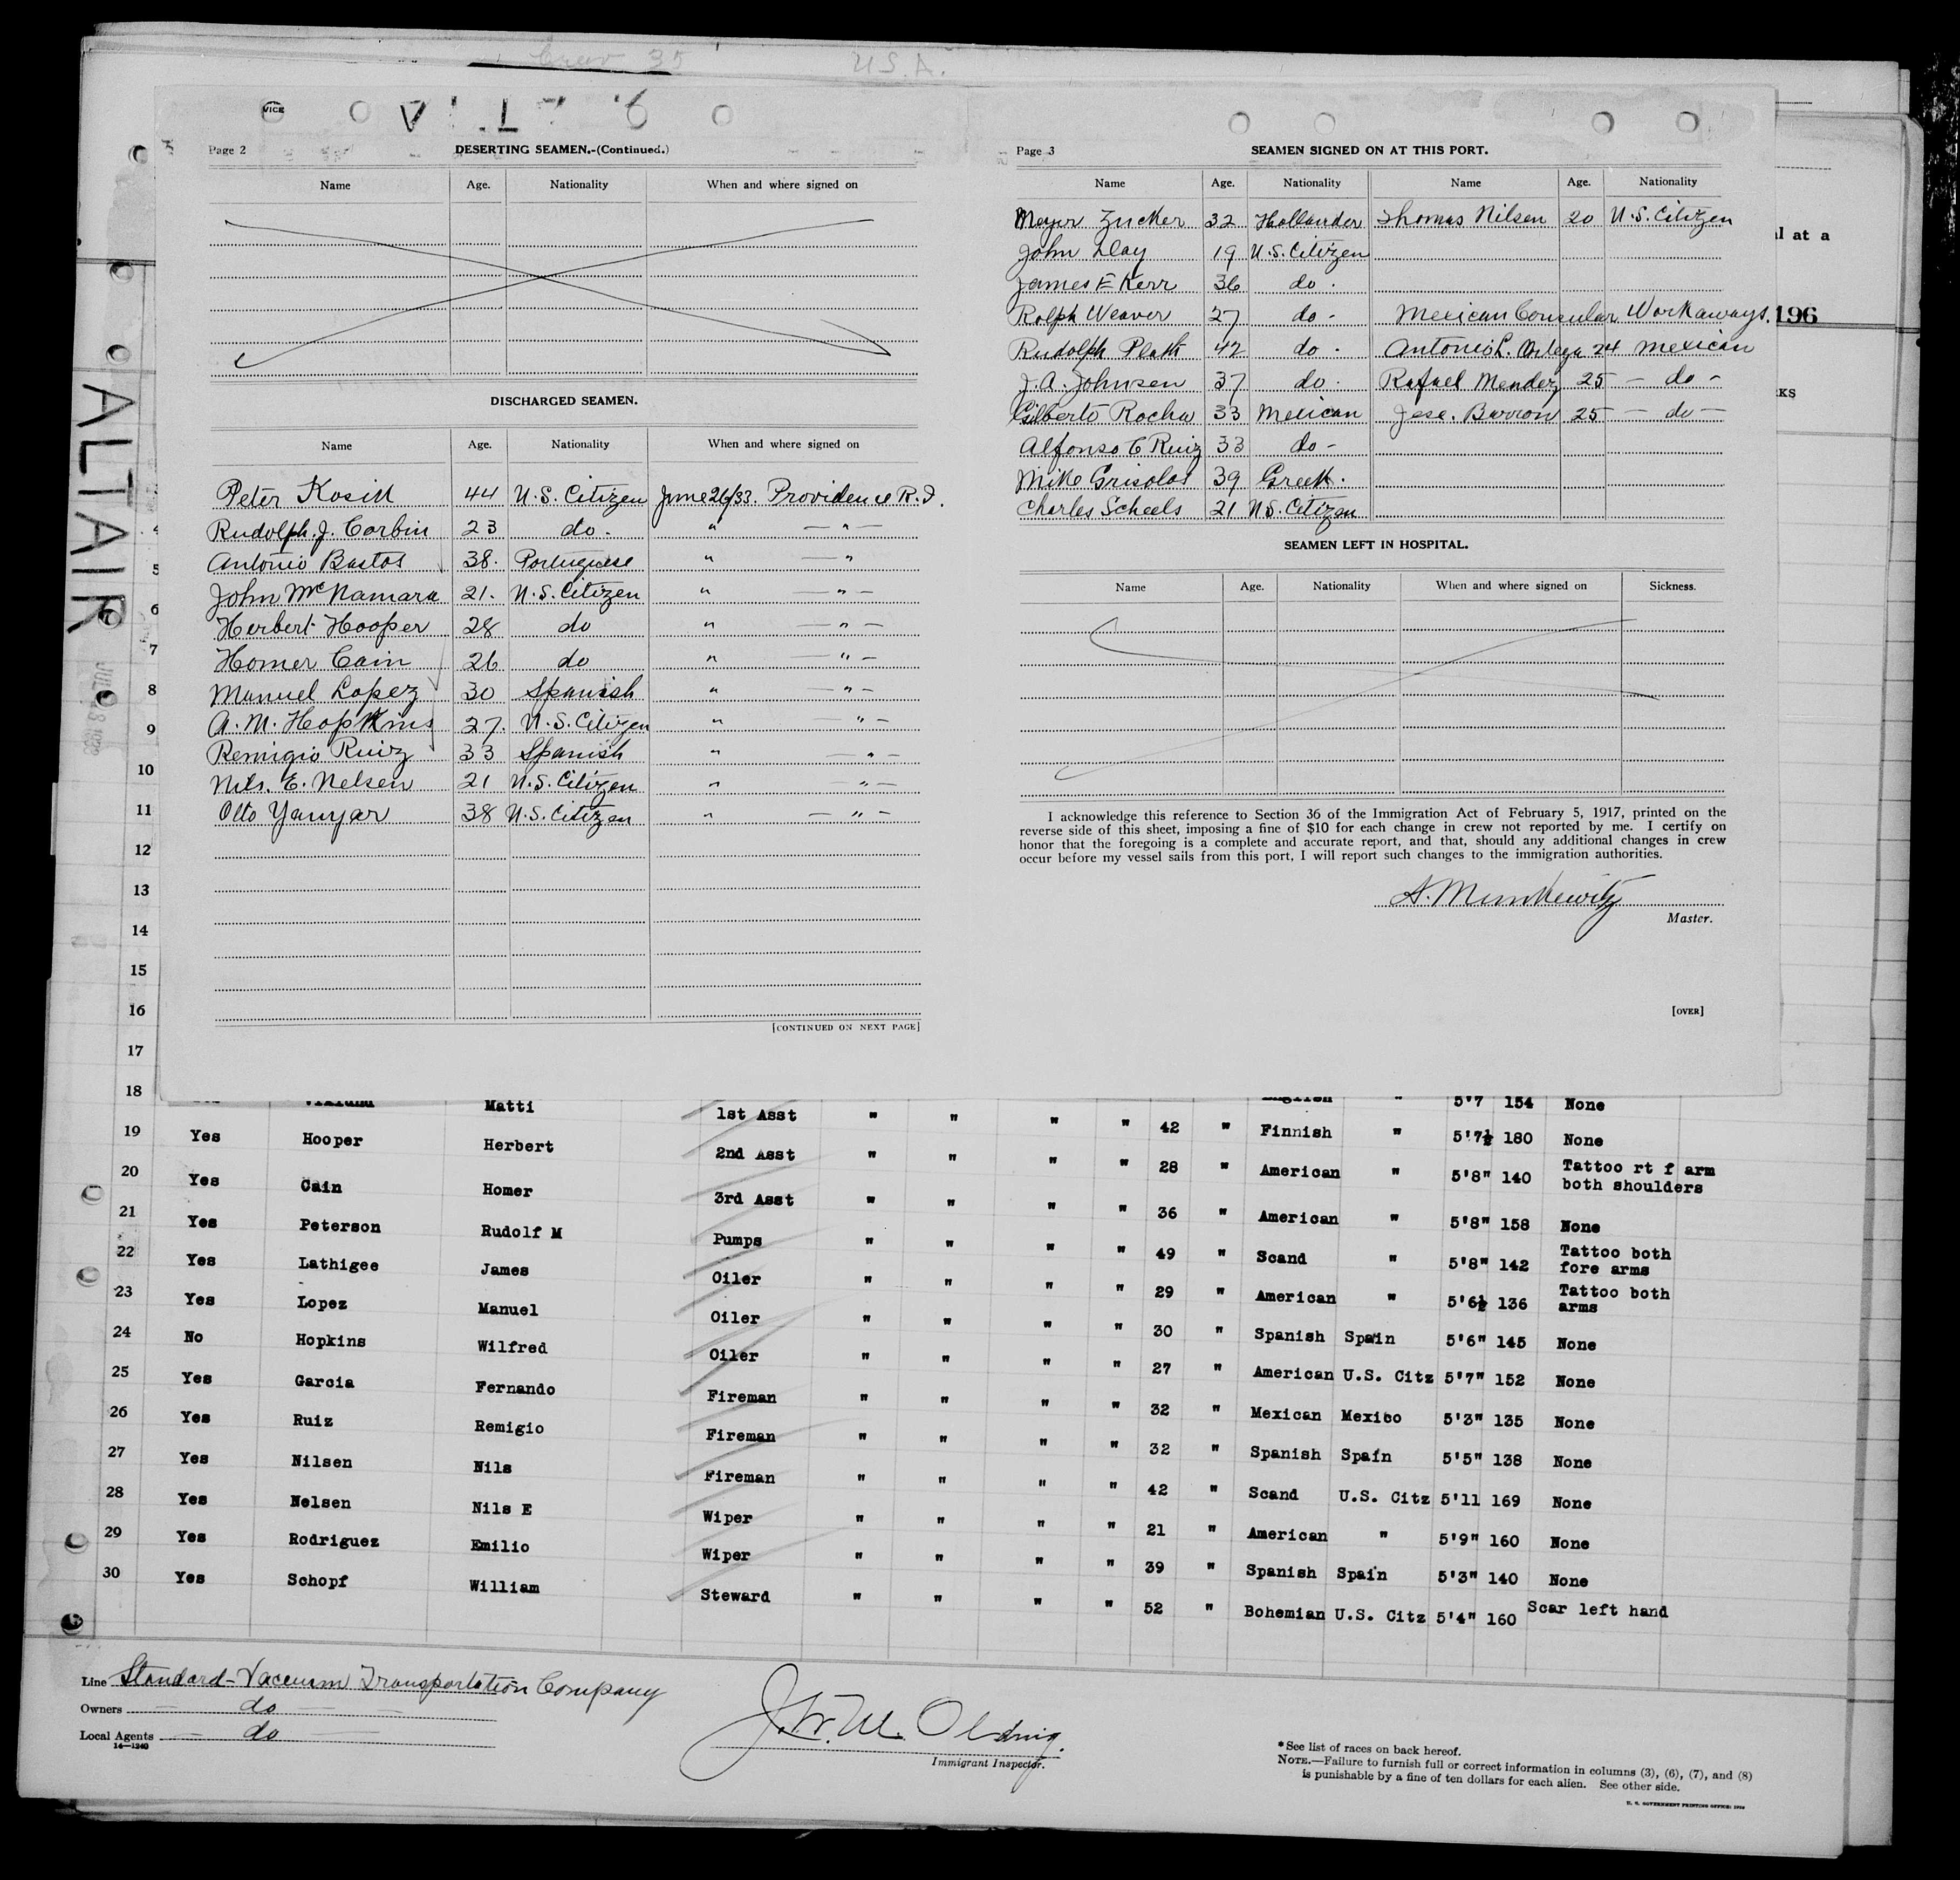 Crew 35 U.S.A.
Page 2 DESERTING SEAMEN.-(Continued.)
Name Age. Nationality When and where signed on
DISCHARGED SEAMEN.
Name Age. Nationality When and where signed on
Peter Kosik 44 U.S. Citizen June 26/33. Providence R.I.
Rudolph. J. Corbin 23 do. " — " —
Antonio Bastos 38. Portuguese " — "
John McNamara 21. U.S. Citizen " — " —
Herbert Hooper 28 do " — " —
Homer Cain 26 do " — " —
Manuel Lopez 30 Spanish " — " —
A. M. Hopkins 27. U.S. Citizen " — " —
Remigio Ruiz 33 Spanish " — " —
Nils. E. Nelsen 21 U.S. Citizen " — " —
Otto Yanyar 38 U.S. Citizen " — " —
[CONTINUED ON NEXT PAGE]
Page 3 SEAMEN SIGNED ON AT THIS PORT.
Name Age. Nationality Name Age. Nationality
Meyer Zucker 32 Hollander Thomas Nilsen 20 U.S. Citizen
John Day 19 U.S. Citizen
James E Kerr 36 do.
Ralph Weaver 27 do - Mexican Consular Workaways.
Rudolph Plath 42 do. Antonio L. Ortega 24 Mexican
J. A. Johnsen 37 do. Rafael Mendez 25 — do —
Gilberto Rocha 33 Mexican Jese. Barron 25 — do —
Alfonso C Ruiz 33 do -
Mike Grisolas 39 Greek.
Charles Scheels 21 U.S. Citizen
SEAMEN LEFT IN HOSPITAL.
Name Age. Nationality When and where signed on Sickness.
I acknowledge this reference to Section 36 of the Immigration Act of February 5, 1917, printed on the
reverse side of this sheet, imposing a fine of $10 for each change in crew not reported by me. I certify on
honor that the foregoing is a complete and accurate report, and that, should any additional changes in crew
occur before my vessel sails from this port, I will report such changes to the immigration authorities.
A. Munkewitz
Master.
[OVER]
al at a
196
KS
ALTAIR
4
5
6
7
8
9
10
11
12
13
14
15
16
17
18 Matti 1st Asst " " " " 42 " Finnish " 5'7½ 180 None
English " 5'7 154 None
19 Yes Hooper Herbert 2nd Asst " " " " 28 " American " 5'8" 140 Tattoo rt f arm both shoulders
20 Yes Cain Homer 3rd Asst " " " " 36 " American " 5'8" 158 None
21 Yes Peterson Rudolf M Pumps " " " " 49 " Scand " 5'8" 142 Tattoo both fore arms
22 Yes Lathigee James Oiler " " " " 29 " American " 5'6½ 136 Tattoo both arms
23 Yes Lopez Manuel Oiler " " " " 30 " Spanish Spain 5'6" 145 None
24 No Hopkins Wilfred Oiler " " " " 27 " American U.S. Citz 5'7" 152 None
25 Yes Garcia Fernando Fireman " " " " 32 " Mexican Mexico 5'3" 135 None
26 Yes Ruiz Remigio Fireman " " " " 32 " Spanish Spain 5'5" 138 None
27 Yes Nilsen Nils Fireman " " " " 42 " Scand U.S. Citz 5'11 169 None
28 Yes Nelsen Nils E Wiper " " " " 21 " American " 5'9" 160 None
29 Yes Rodriguez Emilio Wiper " " " " 39 " Spanish Spain 5'3" 140 None
30 Yes Schopf William Steward " " " " 52 " Bohemian U.S. Citz 5'4" 160 Scar left hand
Line Standard-Vacuum Transportation Company
Owners — do —
Local Agents — do —
14—1240
Immigrant Inspector.
*See list of races on back hereof.
NOTE.—Failure to furnish full or correct information in columns (3), (6), (7), and (8)
is punishable by a fine of ten dollars for each alien. See other side.